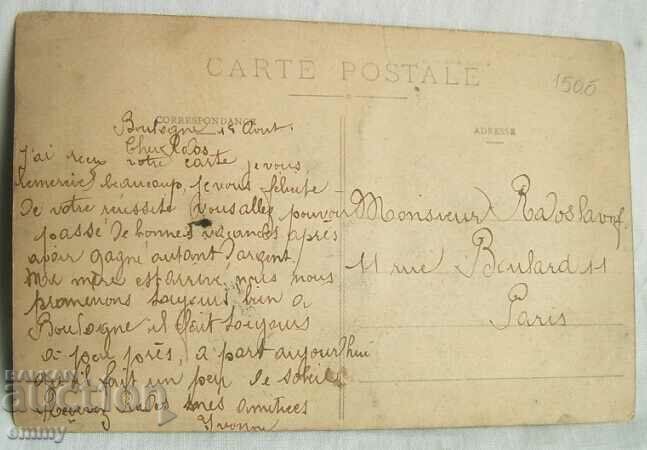 CARTE POSTALE
1506
CORRESPONDANCE
ADRESSE
Boulogne 18 Aout.
Cher Rados
j'ai reçu votre carte je vous
remercie beaucoup, je vous felicite
de votre reussite vous allez pouvoir
passé de bonnes vacances après
avoir gagné autant d'argent.
Ma mère est arrivé, nous nous
promenons toujours bien a
Boulogne il fait toujours
à peu près, a part aujourd'hui
qu'il fait un peu de soleil
Recevez mes amitiees
Yvonne
Monsieur Radoslavof
11 rue Boulard 11
Paris
БАЛКАН
Auction
emmy